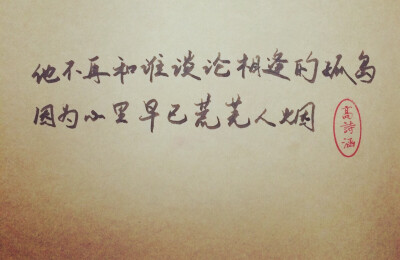 他不再和谁谈论相逢的孤岛
因为心里早已荒芜人烟
高詩涵